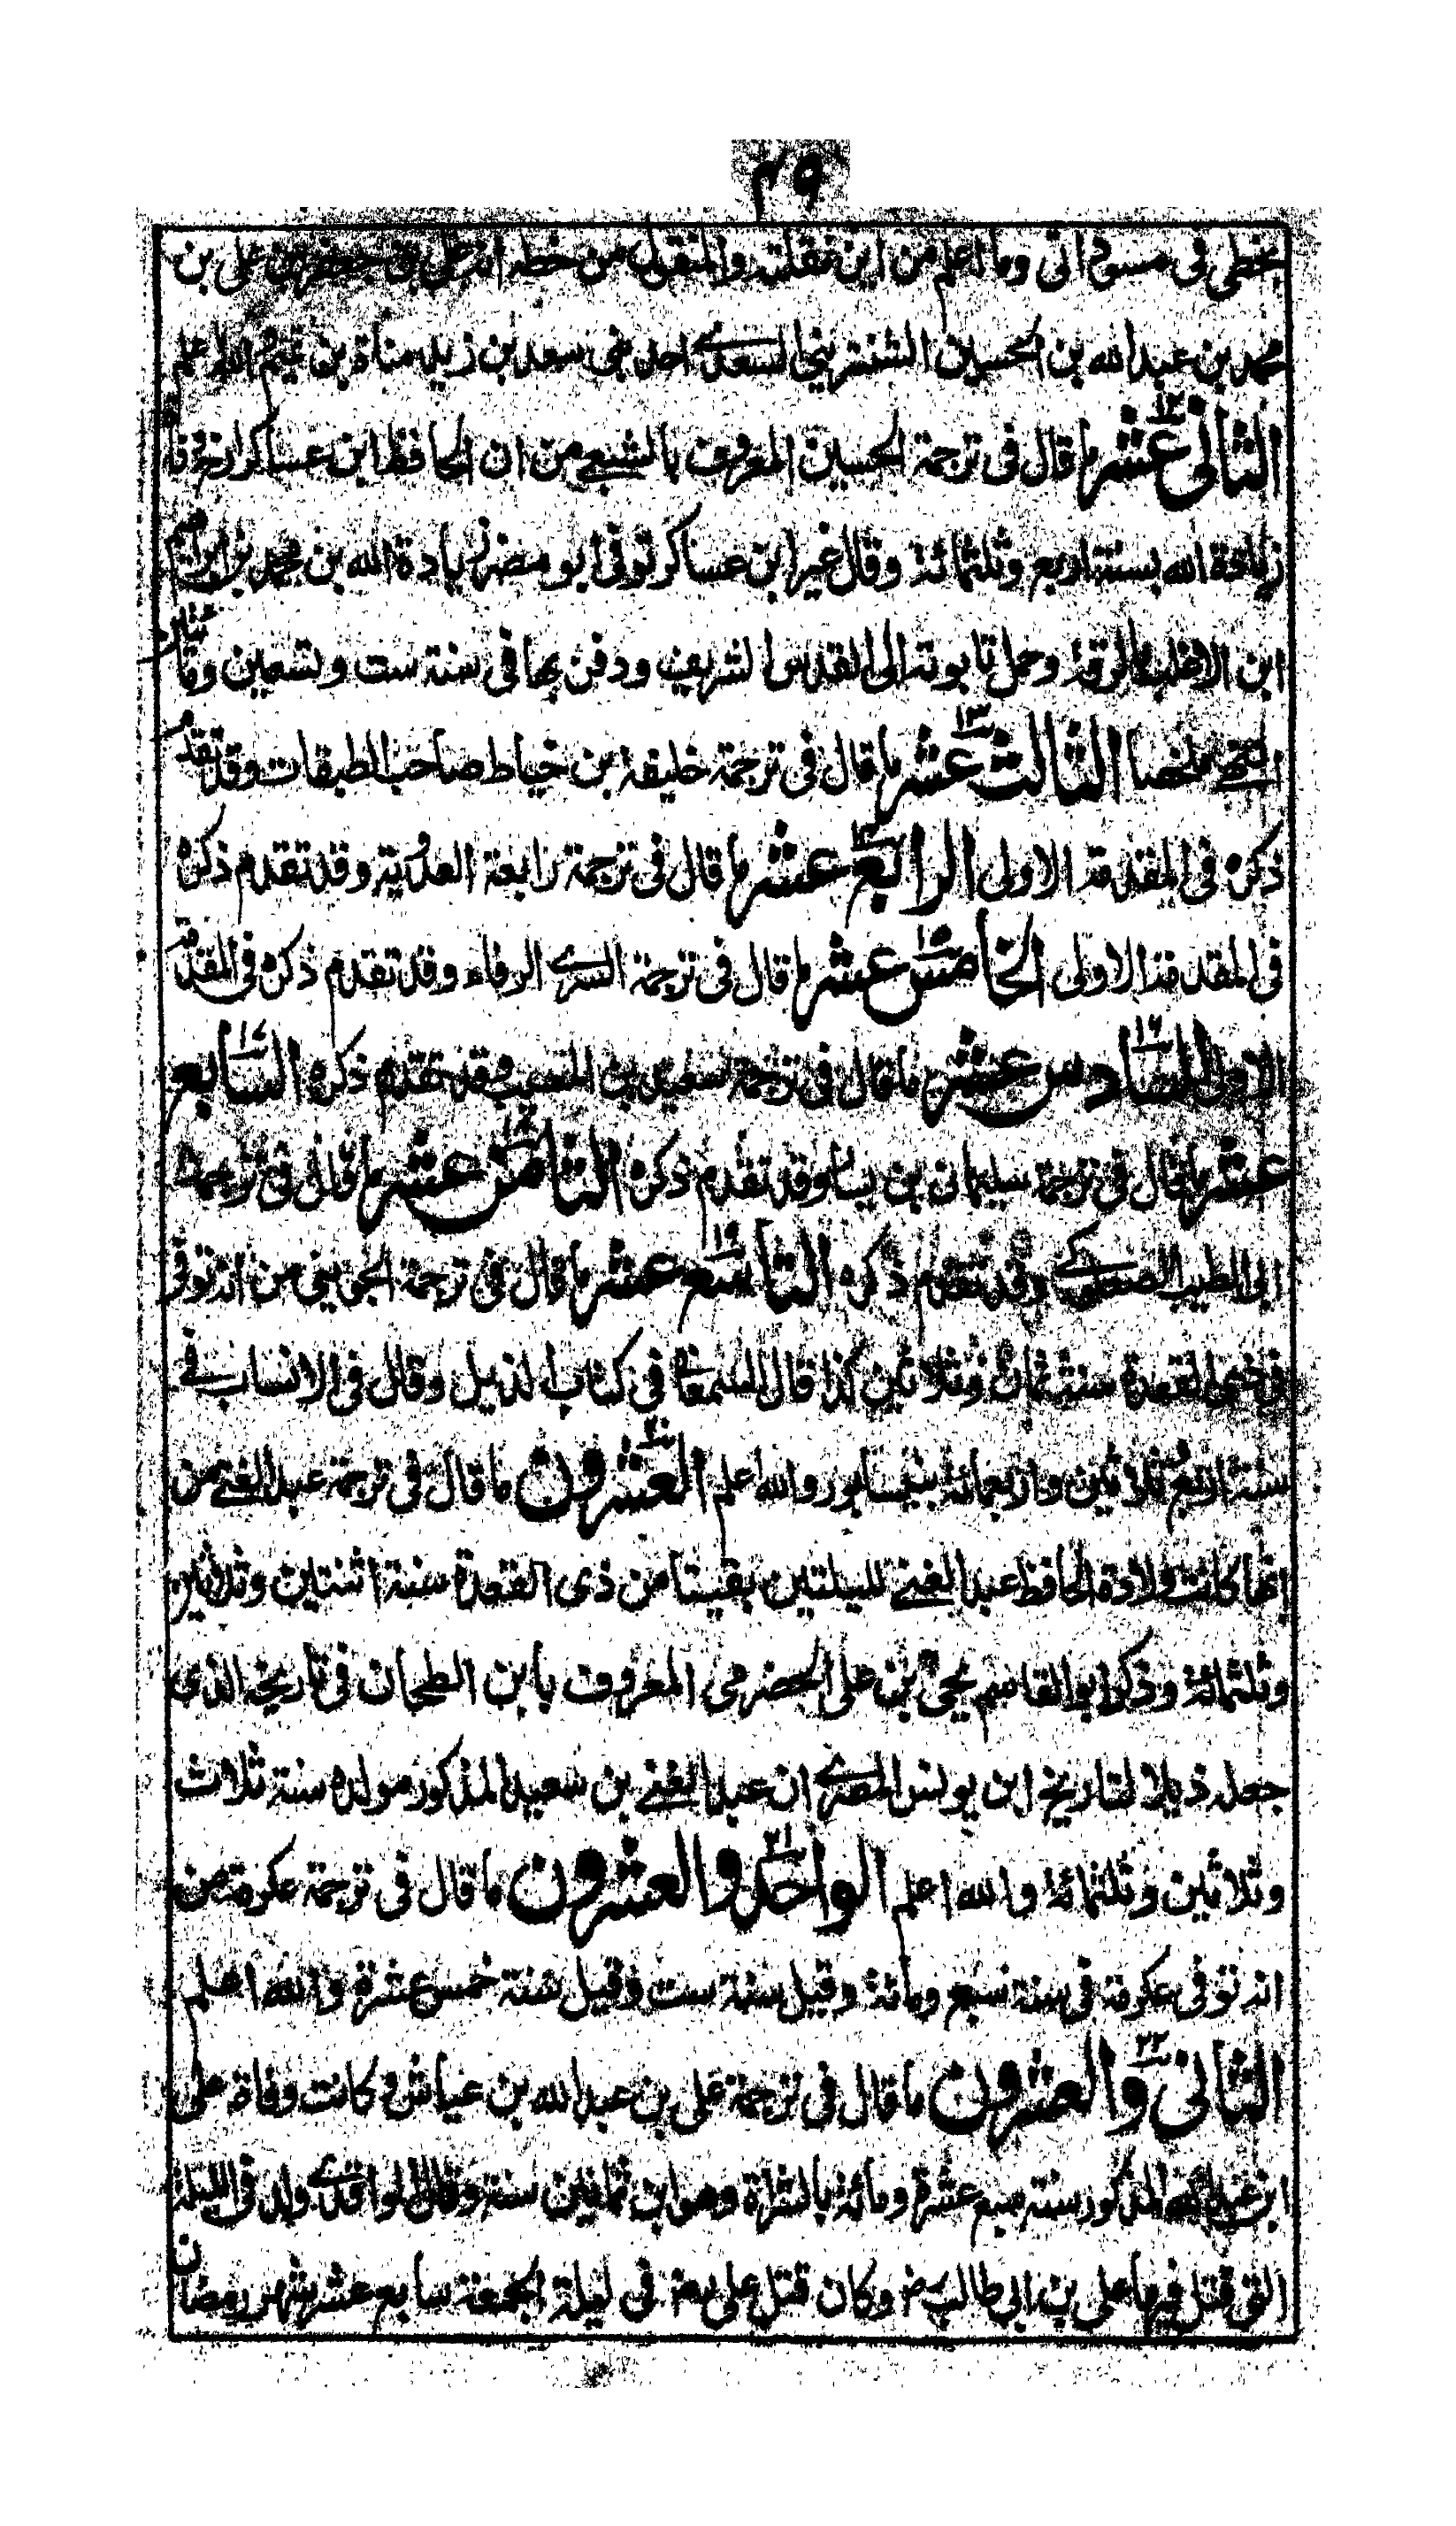 ٢٩
بخطى فى مسوداتى وما اعلم من اين نقلته والمنقول من خطه انه على بن جعفر بن على بن
محمد بن عبد الله بن الحسين الشنترينى السعدے احد بنى سعد بن زيد مناة بن تميم الله اعلم
الثانى عشر ١٢ ما قال فى ترجمة الحسين المعروف بالشيعے من ان الحافظ ابن عساكر ارخ وفاة
زيادة الله بسنة اربع وثلثمائة وقال غير ابن عساكر توفى ابو مضر زيادة الله بن محمد بن ابراهيم
ابن الاغلب بالرقة وحمل تابوته الى القدس الشريف ودفن بها فى سنة ست وتسعين ومائتين
انتهے ملخصا الثالث عشر ١٣ ما قال فى ترجمة خليفة بن خياط صاحب الطبقات وقد تقدم
ذكره فى المقدمة الاولى الرابع عشر ١٤ ما قال فى ترجمة رابعة العدوية وقد تقدم ذكره
فى المقدمة الاولى الخامس عشر ١٥ ما قال فى ترجمة السرے الرفاء وقد تقدم ذكره فى المقدمة
الاولى السادس عشر ١٦ ما قال فى ترجمة سعيد بن المسيب وقد تقدم ذكره السابع ١٧
عشر ما قال فى ترجمة سليمان بن يسار وقد تقدم ذكره الثامن عشر ١٨ ما قال فى ترجمة
ابى الطيب الصعلوكے وقد تقدم ذكره التاسع عشر ١٩ ما قال فى ترجمة الجوينى من انه توفى
فى ذى القعدة سنة ثمان وثلاثين كذا قال السمعانے فى كتاب الذيل وقال فى الانساب فے
سنة اربع وثلاثين واربعمائة بنيسابور والله اعلم العشرون ٢٠ ما قال فى ترجمة عبد الغنے من
انها كانت ولادة الحافظ عبد الغنے لليلتين بقيتا من ذى القعدة سنة اثنتين وثلاثين
وثلثمائة وذكر ابو القاسم يحيى بن على الحضرمى المعروف بابن الطحان فى تاريخه الذى
جعله ذيلا لتاريخ ابن يونس المصرے ان عبد الغنے بن سعيد المذكور مولده سنة ثلاث
وثلاثين وثلثمائة والله اعلم الواحد والعشرون ٢١ ما قال فى ترجمة عكرمة من
انه توفى عكرمة فى سنة سبع ومائة وقيل سنة ست وقيل سنة خمس عشرة والله اعلم
الثانى والعشرون ٢٢ ما قال فى ترجمة على بن عبد الله بن عباس وكانت وفاة على
ابن عبد الله المذكور سنة سبع عشرة ومائة بالشراة وهو ابن ثمانين سنة وقال الواقدے ولد فى الليلة
التى قتل فيها على بن ابى طالب رض وكان قتل على رض فى ليلة الجمعة سابع عشر شهر رمضان